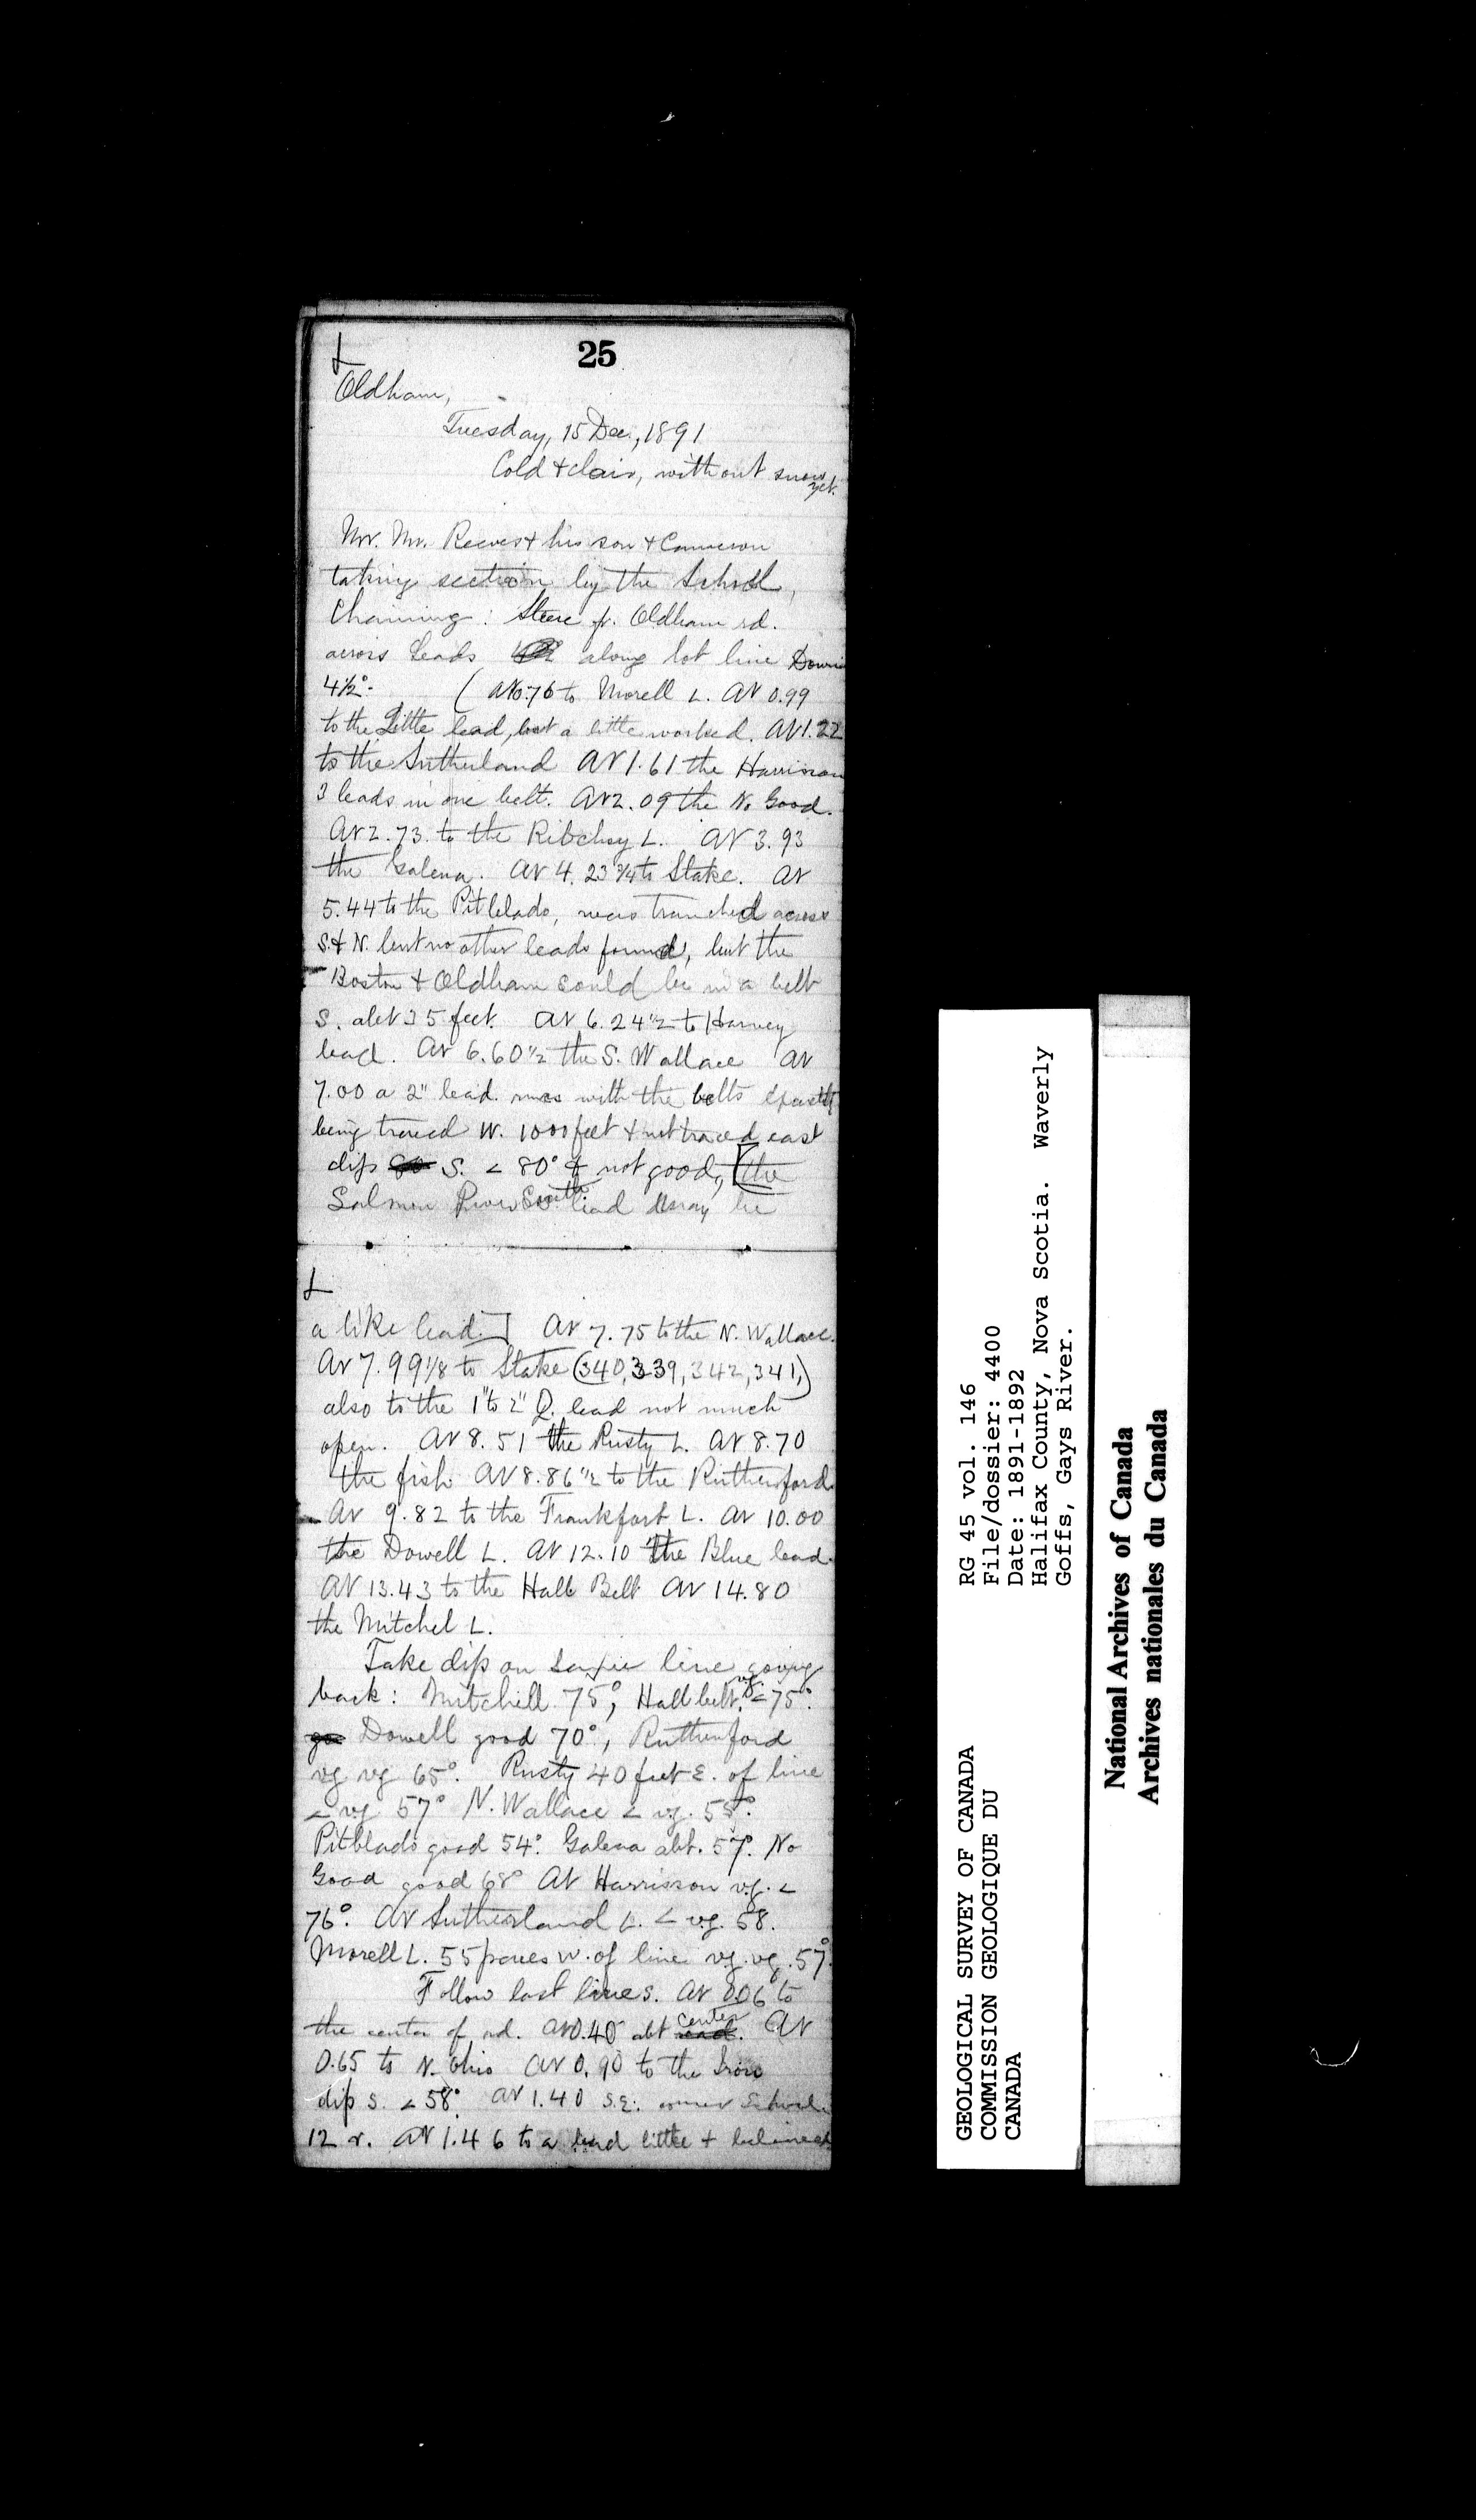 25
Oldham,
Tuesday, 15 Dec., 1891
Cold & clair, without snow yet.
Mr. Mr. Reeves & his son & Cameron
taking section by the School,
Chaining: fr. Oldham rd.
across Leads along lot line
4½°. (At 0.76 to Morell L. At 0.99
to the Little lead, but a little worked. At 1.22
to the Sutherland At 1.61 the Harrison
3 leads in one belt. At 2.09 the No Good.
At 2.73 to the L. At 3.93
the Galena. At 4.23 3/4 to Stake. At
5.44 to the Pitblado, across
S. & N. but no other leads found, but the
Boston & Oldham could be in a belt
S. abt 35 feet. At 6.24 1/2 to Harvey
lead. At 6.60 1/2 the S. Wallace At
7.00 a 2" lead. runs with the belts exactly
being traced W. 1000 feet & not traced east
dip S. < 80° & not good, [the
Salmon River South lead may be
a like lead.] At 7.75 to the N. Wallace.
At 7.99 1/8 to Stake (340, 339, 342, 341,)
also to the 1" to 2" Q. lead not much
open. At 8.51 the Rusty L. At 8.70
the fish At 8.86 1/2 to the Rutherford.
At 9.82 to the Frankfort L. At 10.00
the Dowell L. At 12.10 the Blue lead.
At 13.43 to the Hall Belt At 14.80
the Mitchel L.
Take dip on same line going
back: Mitchell 75°, Hall belt. vg. < 75°.
Dowell good 70°, Rutherford
vg vg 65°. Rusty 40 feet E. of line
< vg 57° N. Wallace < vg. 58°.
Pitblado good 54°. Galena abt. 57°. No
Good good 68° At Harrisson vg. <
76°. At Sutherland L. < vg. 58.
Morell L. 55 paces W. of line vg. vg. 57°.
Follow last line S. At 0.06 to
the center of rd. At 0.40 abt center. At
0.65 to N. Ohio At 0.90 to the Iron
dip S. < 58°. At 1.40 S.E. corner School
12 r. At 1.46 to a lead little &
RG 45 vol. 146
File/dossier: 4400
Date: 1891-1892
Halifax County, Nova Scotia. Waverly
Goffs, Gays River.
GEOLOGICAL SURVEY OF CANADA
COMMISSION GEOLOGIQUE DU
CANADA
National Archives of Canada
Archives nationales du Canada